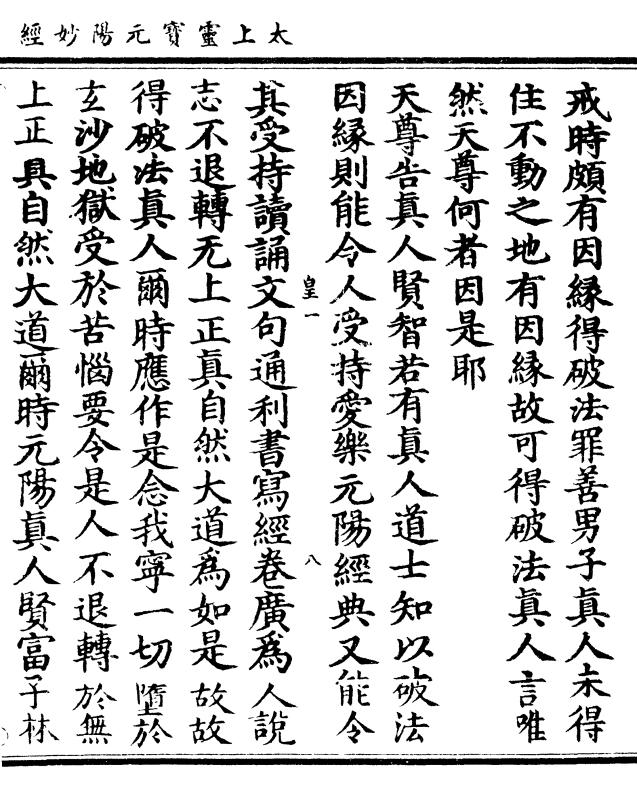 太上靈寶元陽妙經
戒時頗有因縁得破法罪善男子真人未得
住不動之地有因縁故可得破法真人言唯
然天尊何者因是耶
天尊告真人賢智若有真人道士知以破法
因縁則能令人受持愛樂元陽經典又能令
皇一
八
其受持讀誦文句通利書寫經卷廣爲人說
志不退轉无上正真自然大道爲如是故故
得破法真人爾時應作是念我寧一切墮於
玄沙地獄受於苦惱要令是人不退轉於無
上正具自然大道爾時元陽真人賢富子林